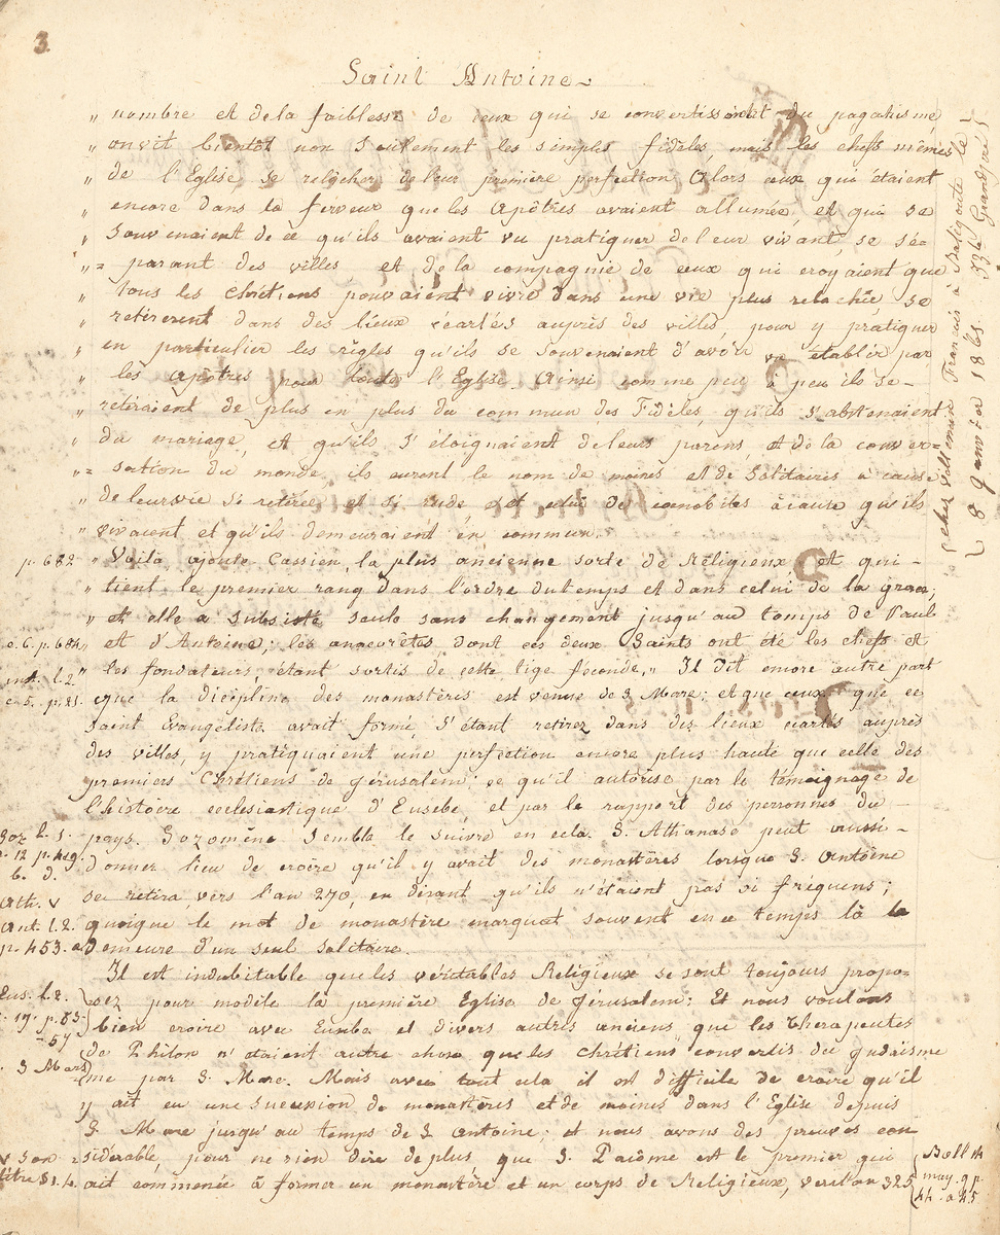 3.
Saint Antoine.
„ nombre et de la faiblesse de ceux qui se convertissaient du paganisme,
„ on vit bientôt non seulement les simples fidèles, mais les chefs mêmes
„ de l'Eglise, se relâcher de leur première perfection. Alors ceux qui étaient
„ encore dans la ferveur que les Apôtres avaient allumée, et qui se
„ souvenaient de ce qu'ils avaient vu pratiquer de leur vivant, se sé=
„= parant des villes, et de la compagnie de ceux qui croyaient que
„ tous les Chrétiens pouvaient vivre dans une vie plus relachée, se
„ retirerent dans des lieux écartés auprès des villes, pour y pratiquer
„ en particulier les règles qu'ils se souvenaient d'avoir vu établir par
„ les Apôtres pour toute l'Eglise. Ainsi comme peu à peu ils se-
„ retiraient de plus en plus du commun des Fidèles, qu'ils s'abstenaient
„ du mariage, et qu'ils s'éloignaient de leurs parens, et de la conver=
„= sation du monde, ils eurent le nom de moines et de solitaires à cause
„ de leur vie si retirée et si rude et celui de cénobites à cause qu'ils
„ vivaient et qu'ils demeuraient en commun.
p. 682 „ Voilà, ajoute Cassien, la plus ancienne sorte de Religieux et qui -
„ tient le premier rang dans l'ordre du temps et dans celui de la grace,
„ et elle a subsisté seule sans changement jusqu'au temps de Paul
c. 6. p. 684 „ et d'Antoine; les anacorêtes dont ces deux Saints ont été les chefs et
inst. l. 2. „ les fondateurs, étant sortis de cette tige féconde. „ Il dit encore autre part
c. 5. p. 21. que la dicipline des monastères est venue de S. Marc; et que ceux que ce
Saint Evangéliste avait formé, s'étant retirez dans des lieux écartés auprès
des villes, y pratiquaient une perfection encore plus haute que celle des
premiers Chrétiens de Jérusalem; ce qu'il autorise par le témoignage de
l'histoire ecclesiastique d'Eusebe, et par le rapport des personnes du
Soz. l. 1. pays. Sozomène semble le suivre en cela. S. Athanase peut aussi -
c. 12 p. 419. donner lieu de croire qu'il y avait des monastères lorsque S. Antoine
b. d. se retira, vers l'an 270, en disant qu'ils n'étaient pas si fréquens;
Ath. v. Ant. l. 2. quoique le mot de monastère marquat souvent en ce temps là la
p. 453. a. demeure d'un seul solitaire.
Il est indubitable que les véritables Religieux se sont toujours propo=
Eus. l. 2. sez pour modèle la première Eglise de Jérusalem: Et nous voulons
c. 17. p. 53- bien croire avec Eusebe et divers autres anciens que les Therapeutes
- 57 de Philon n'etaient autre chose que les chrétiens convertis du Judaïsme
S. Marc me par S. Marc. Mais avec tout cela il est difficile de croire qu'il
y ait eu une succession de monastères et de moines dans l'Eglise depuis
S. Marc jusqu'au temps de S. Antoine; et nous avons des preuves con-
v. son sidérable, pour ne rien dire de plus, que S. Pacôme est le premier qui
titre § 1. 4. ait commencé à former un monastère et un corps de Religieux, vers l'an 325
Boll. 14
may. p
44. a 45
chez Français à Batignolle le
8 Janvier 1865.